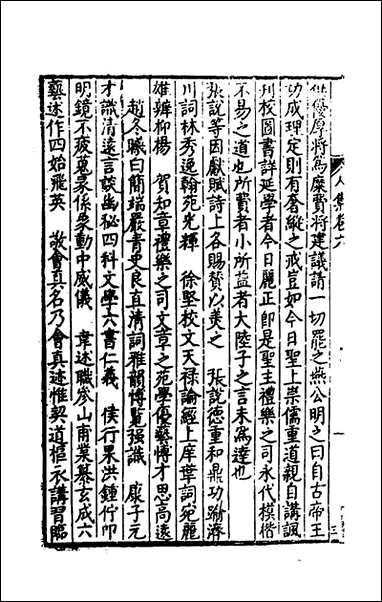 供優厚將為糜費將建議請一切罷之燕公明之曰自古帝王
功成理定則有奢縱之戒豈如今日聖上崇儒重道親自講諷
刋校圖書詳延學者今日麗正即是聖主禮樂之司永代模楷
不易之道也所費者小所益者大陸子之言未為達也
張說等因獻賦詩上各賜贊以美之 張說德重和鼎功踰濟
川詞林秀逸翰苑光輝 徐堅校文天禄論經上庠華詞宛麗
雄辨柳楊 賀知章禮樂之司文章之苑學優藝博才思高遠
趙冬曦曰簡端嚴書史良直清詞雅韻博覧强識 康子元
才識清遠言談幽秘四科文學六書仁義 侯行果洪鍾佇叩
明鏡不疲係象動中威儀 韋述職參山甫業纂玄成六
藝述作四始飛英 敬會真名乃會真迹惟契道樞衣講習臨